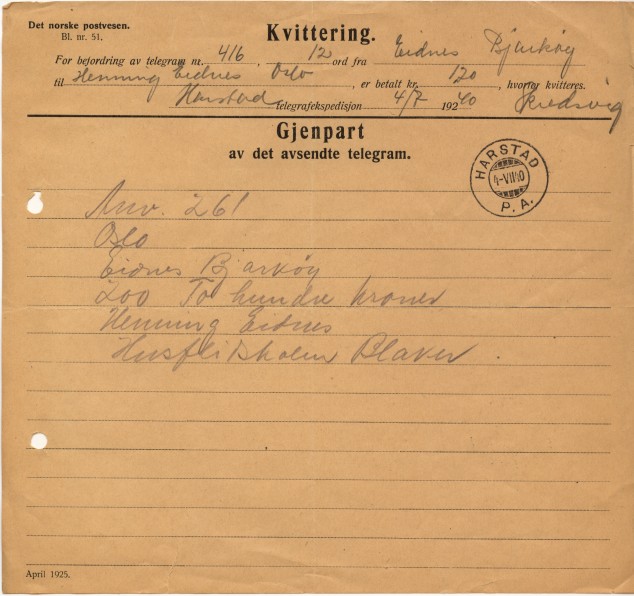 Det norske postvesen.
Bl. nr. 51.
Kvittering.
For befordring av telegram nr. 416, 12 ord fra Eidnes Bjarkøy
til Henning Eidnes Oslo, er betalt kr. 120, hvorfor kvitteres.
Harstad telegrafekspedisjon 4/7 1940
Gjenpart
av det avsendte telegram.
HARSTAD
4-VII40
P. A.
Anv. 261
Oslo
Eidnes Bjarkøy
200 To hundre kroner
Henning Eidnes
Husflidskolen Blaker
April 1925.